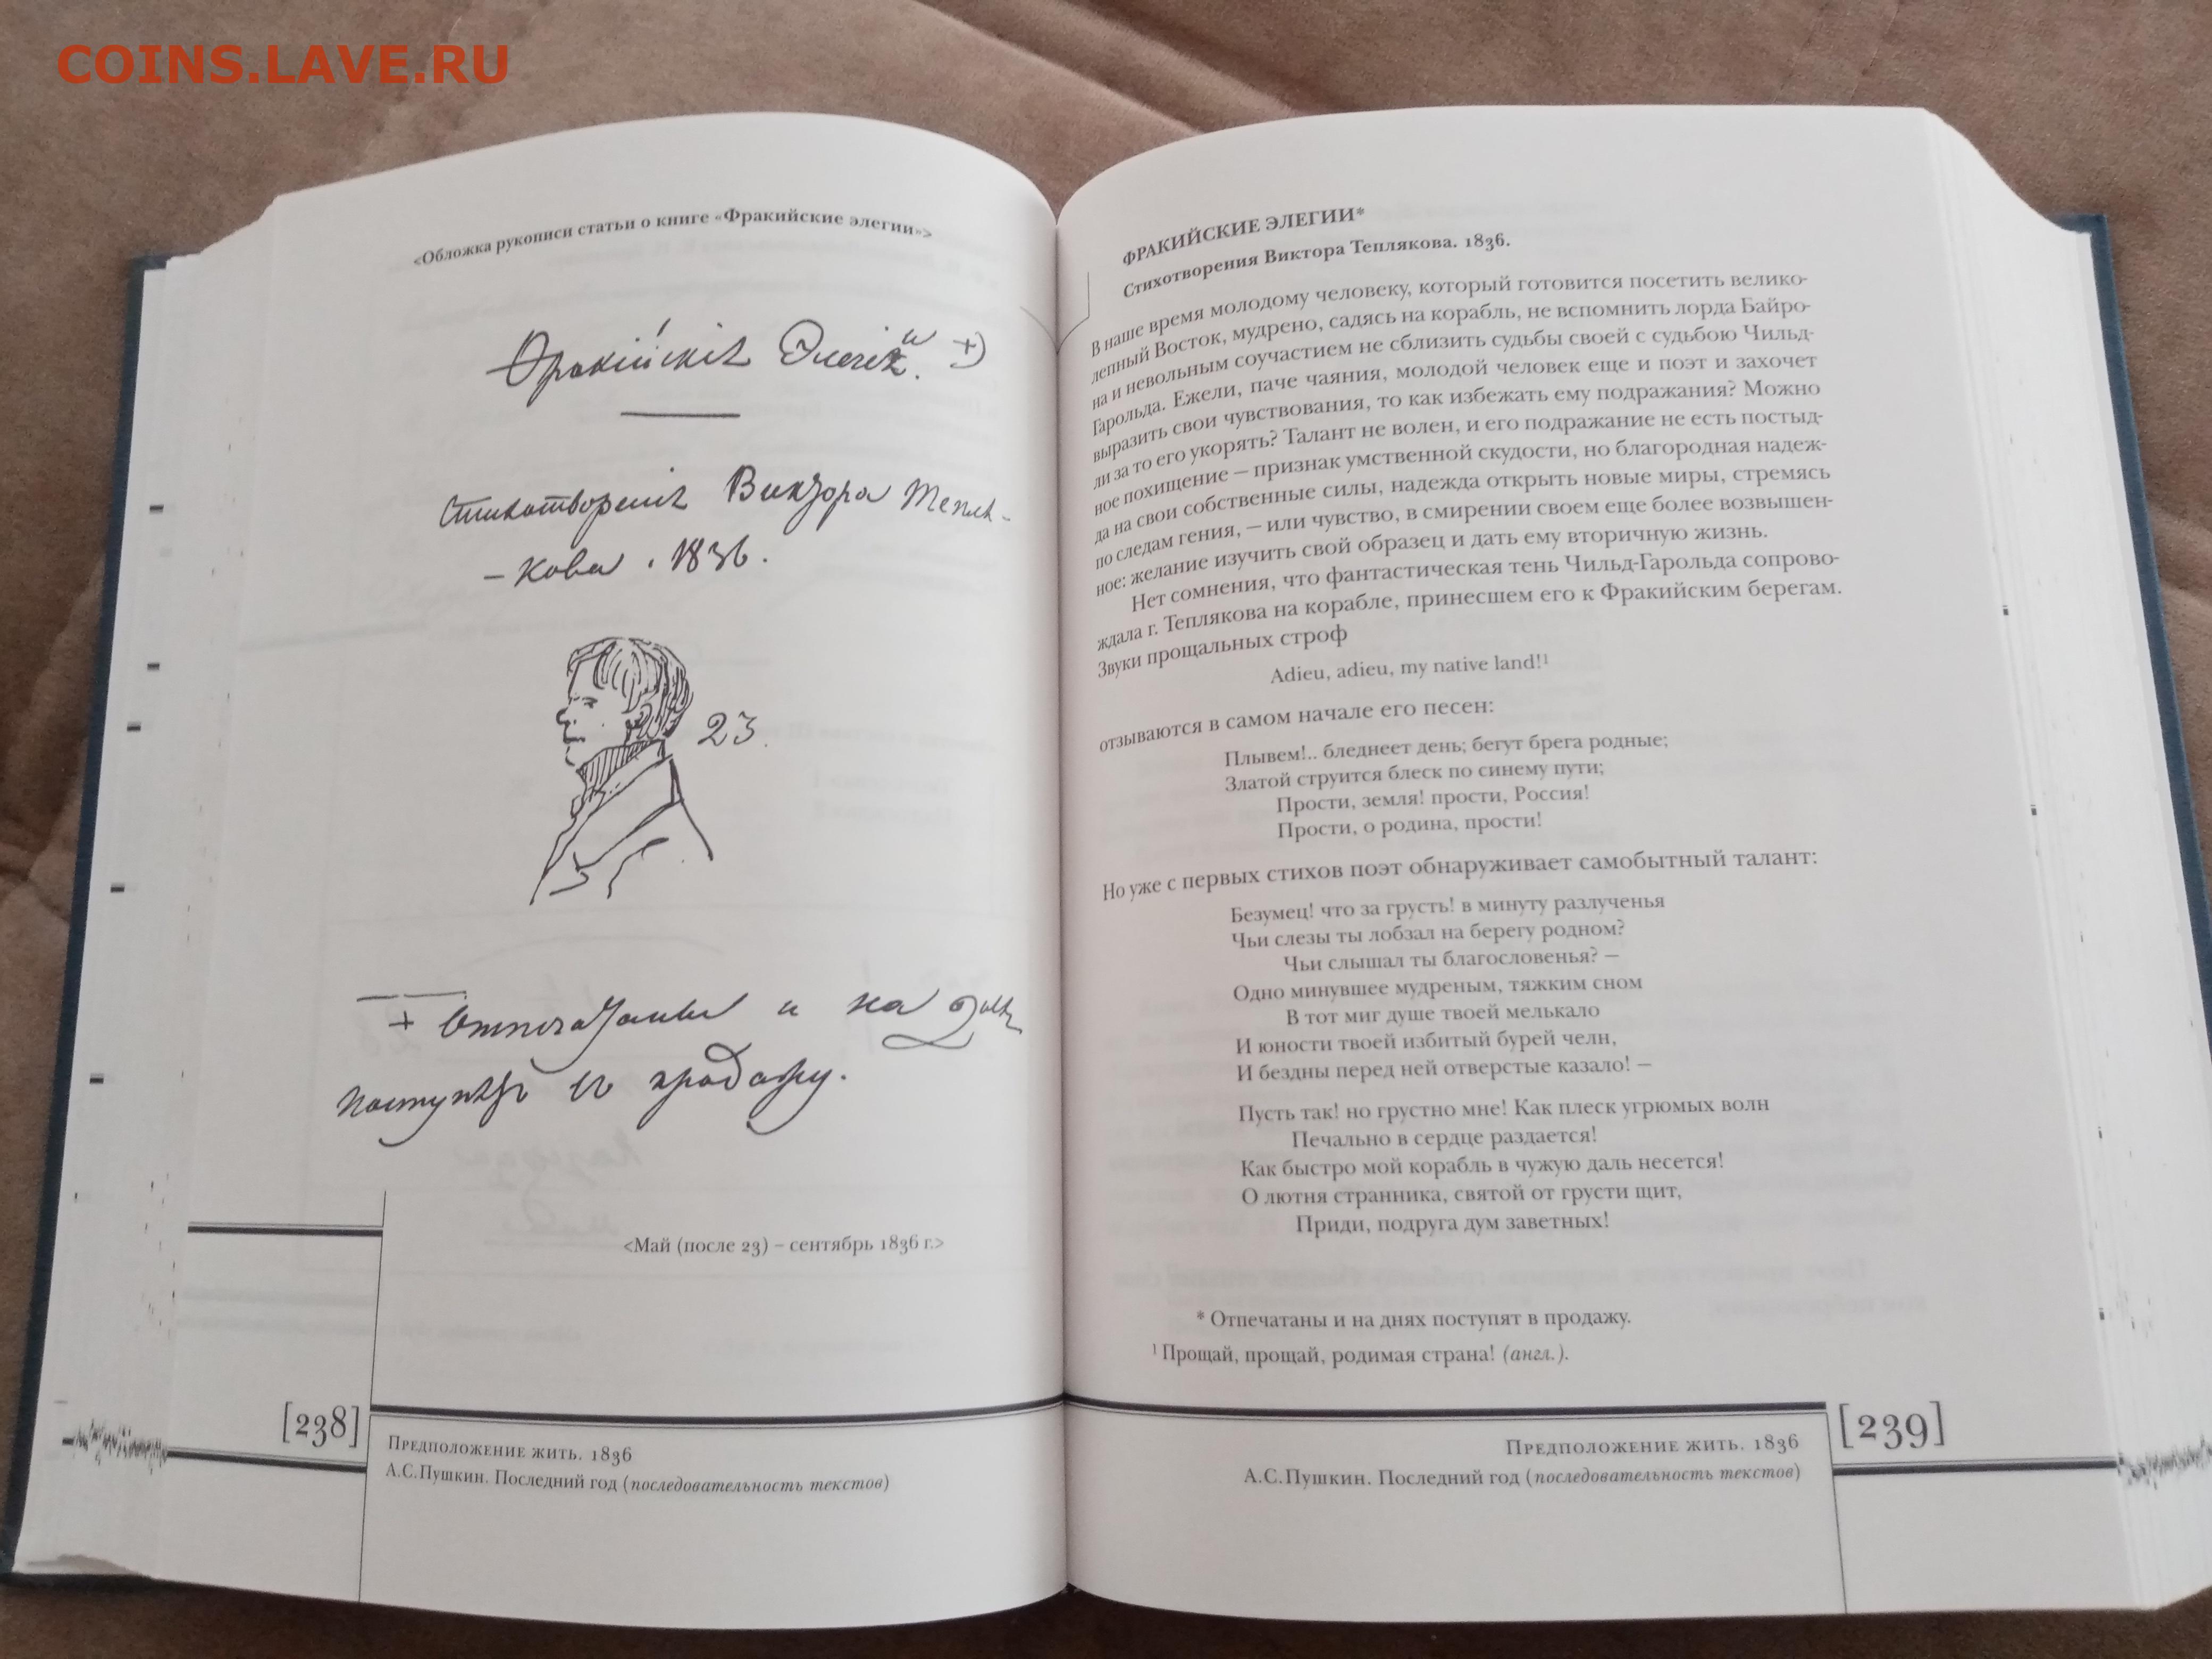 COINS.LAVE.RU
<Обложка рукописи статьи о книге «Фракийские элегии»>
Фракійскія Элегіи. +)
Стихотворенія Виктора Тепля-
-кова. 1836.
23.
+ Отпечатаны и на дняхъ
поступятъ въ продажу.
<Май (после 23) – сентябрь 1836 г.>
[238]
Предположение жить. 1836
А.С.Пушкин. Последний год (последовательность текстов)
ФРАКИЙСКИЕ ЭЛЕГИИ*
Стихотворения Виктора Теплякова. 1836.
В наше время молодому человеку, который готовится посетить велико-
лепный Восток, мудрено, садясь на корабль, не вспомнить лорда Байро-
на и невольным соучастием не сблизить судьбы своей с судьбою Чильд-
Гарольда. Ежели, паче чаяния, молодой человек еще и поэт и захочет
выразить свои чувствования, то как избежать ему подражания? Можно
ли за то его укорять? Талант не волен, и его подражание не есть постыд-
ное похищение — признак умственной скудости, но благородная надеж-
да на свои собственные силы, надежда открыть новые миры, стремясь
по следам гения, — или чувство, в смирении своем еще более возвышен-
ное: желание изучить свой образец и дать ему вторичную жизнь.
Нет сомнения, что фантастическая тень Чильд-Гарольда сопрово-
ждала г. Теплякова на корабле, принесшем его к Фракийским берегам.
Звуки прощальных строф
Adieu, adieu, my native land!¹
отзываются в самом начале его песен:
Плывем!.. бледнеет день; бегут брега родные;
Златой струится блеск по синему пути;
Прости, земля! прости, Россия!
Прости, о родина, прости!
Но уже с первых стихов поэт обнаруживает самобытный талант:
Безумец! что за грусть! в минуту разлученья
Чьи слезы ты лобзал на берегу родном?
Чьи слышал ты благословенья? —
Одно минувшее мудреным, тяжким сном
В тот миг душе твоей мелькало
И юности твоей избитый бурей челн,
И бездны перед ней отверстые казало! —
Пусть так! но грустно мне! Как плеск угрюмых волн
Печально в сердце раздается!
Как быстро мой корабль в чужую даль несется!
О лютня странника, святой от грусти щит,
Приди, подруга дум заветных!
* Отпечатаны и на днях поступят в продажу.
¹ Прощай, прощай, родимая страна! (англ.).
Предположение жить. 1836
А.С.Пушкин. Последний год (последовательность текстов)
[239]